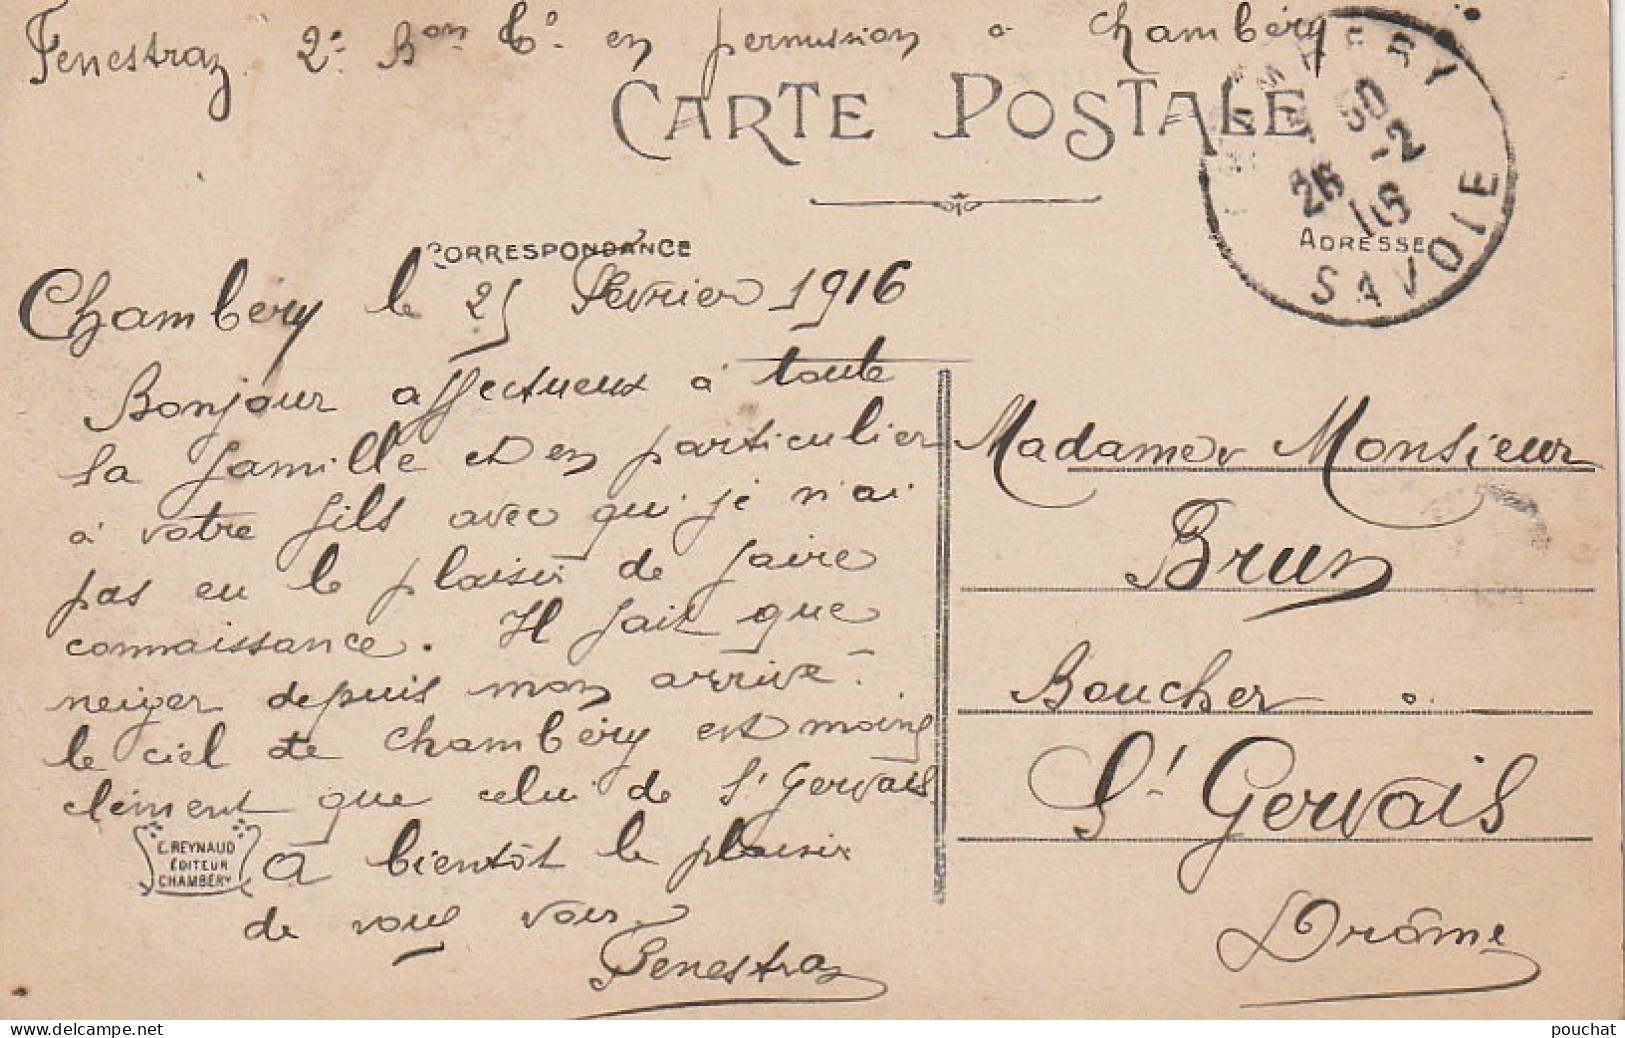 Fenestraz 2e Bon Cie en permission à Chambéry
CARTE POSTALE
CHAMBERY
26 -2 16
SAVOIE
CORRESPONDANCE
ADRESSE
Chambéry le 25 Février 1916
Bonjour affectueux à toute
la famille et en particulier
à votre fils avec qui je n'ai
pas eu le plaisir de faire
connaissance. Il fait que
neiger depuis mon arrivé.
le ciel de Chambéry est moins
clément que celui de St Gervais
A bientôt le plaisir
de vous voir.
Fenestraz
E. REYNAUD
ÉDITEUR
CHAMBÉRY
Madame Monsieur
Brun
Boucher à
St Gervais
Drôme
pouchat